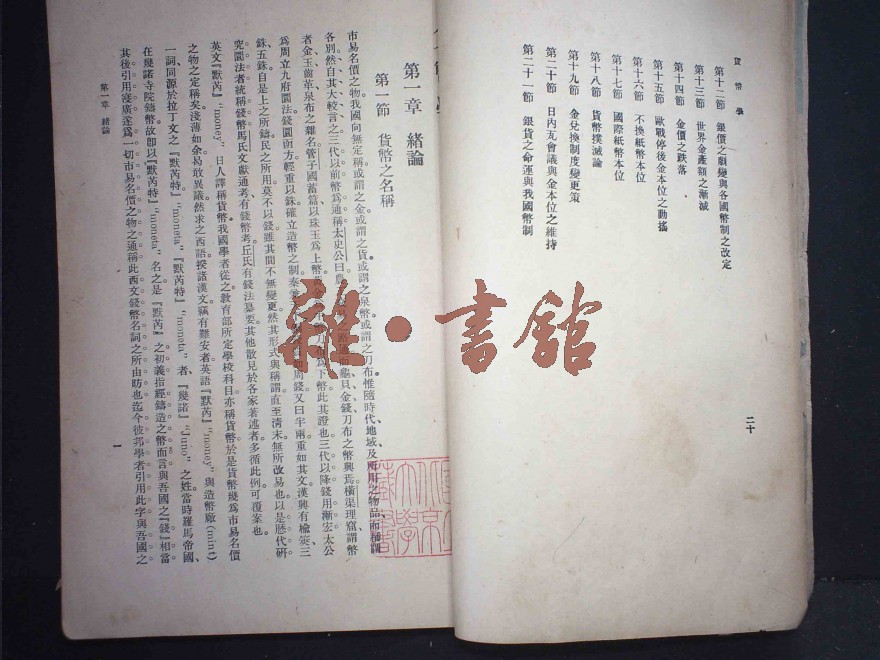 貨幣學
第十二節　銀價之劇變與各國幣制之改定
第十三節　世界金產額之漸減
第十四節　金價之跌落
第十五節　歐戰停後金本位之動搖
第十六節　不換紙幣本位
第十七節　國際紙幣本位
第十八節　貨幣撲滅論
第十九節　金兌換制度變更策
第二十節　日內瓦會議與金本位之維持
第二十一節　銀貨之命運與我國幣制
二十
第一章　緒論
第一節　貨幣之名稱
市易名價之物我國向無定稱或謂之金或謂之貨或謂之泉幣或謂之刀布惟隨時代地域及所用之物品而稱謂
各別然自其大較言之三代以前幣為通稱太史公曰農龜貝金錢刀布之幣興焉橫渠理窟謂幣
者金玉齒革泉布之雜名管子國蓄篇以珠玉為上幣為下幣此其證也三代以降錢用漸宏太公
為周立九府圜法錢圜函方輕重以銖確立造幣之制秦周錢文曰半兩重如其文漢興有榆莢三
銖五銖自是上之所鑄民之所用莫不以錢雖其間不無變更然其形式與稱謂直至清末無所改易也以是歷代研
究圜法者統稱錢幣馬氏文獻通考有錢幣考丘氏有錢法纂要其他散見於各家著述者多循此例可覆案也
英文『默芮』"money"日人譯稱貨幣我國學者從之教育部所定學校科目亦稱貨幣於是貨幣幾為市易名價
之物之定稱矣淺薄如余曷敢異議然求之西語揆諸漢文竊有難安者英語『默芮』"money"與造幣廠(mint)
一詞同源於拉丁文之『默芮特』"moneta"『默芮特』"moneta"者『幾諾』"Juno"之姓當時羅馬帝國
在幾諾寺院鑄幣故卽以『默芮特』"moneta"名之是『默芮』之初義指經鑄造之幣而言與吾國之『錢』相當
其後引用淺廣遂為一切市易名價之物之通稱此西文錢幣名詞之所由昉也迄今彼邦學者引用此字與吾國之
第一章　緒論
一
雜·書館